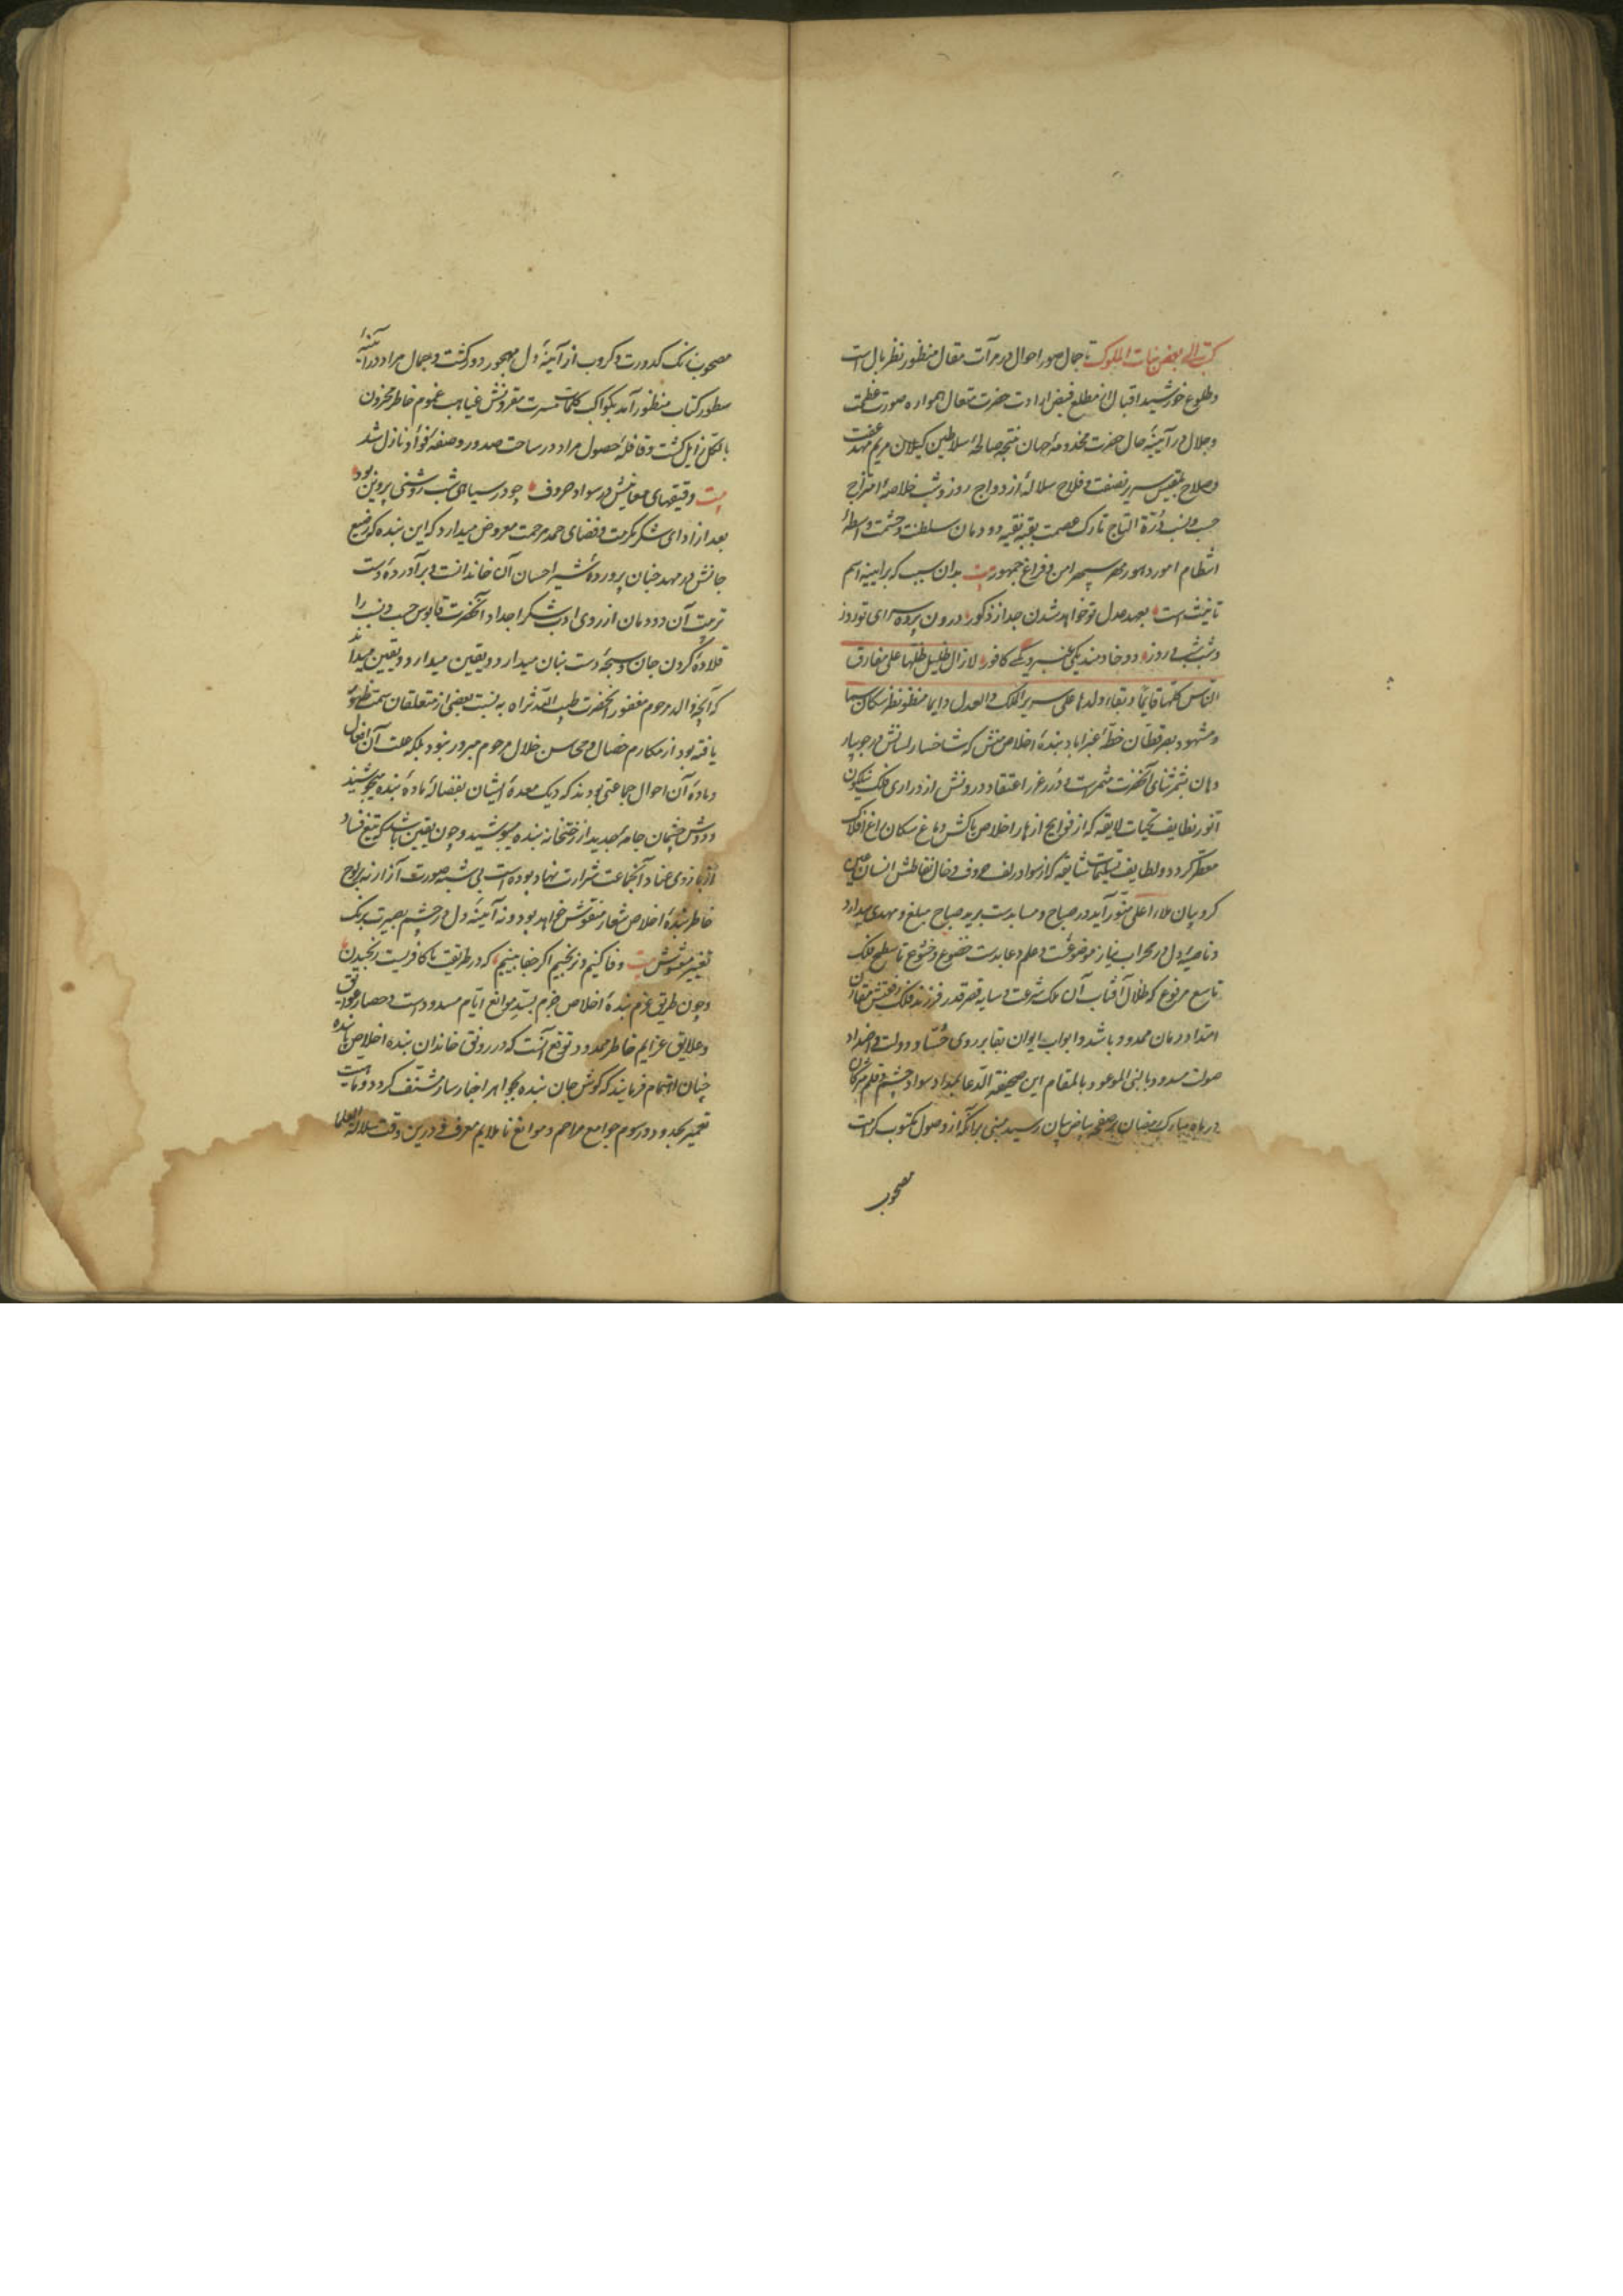 کتب الی بعض بنات الملوک تا جمال صور احوال در مرآت مقال منظور نظر بال است
و طلوع خورشید اقبال از مطلع فیض ارادت حضرت متعال همواره صورت عظمت
و جلال در آیینهٔ حال حضرت مخدومهٔ جهان نتیجهٔ صالحهٔ سلاطین کیلان مریم مهد عفت
و صلاح بلقیس سریر نصفت و فلاح سلالهٔ ازدواج روز و شب خلاصهٔ امتزاج
حسب و نسب درّة التاج تارک عصمت بقیهٔ نقیهٔ دودمان سلطنت و حشمت واسطهٔ
انتظام امور دهور مهر سپهر امن و فراغ جمهور بیت بدان سبب که بر ایینه اسم
تانیث است بعهد عدل تو خواهد شدن جدا از ذکور درون پرده سرای تو روز
و شب شب و روز دو خادمند یکی عنبر و یکی کافور لا زال ظلیل ظلها علی مفارق
الناس کلها قایما و بقاء ولدها علی سریر الملک و العدل دایما منظور نظر سکان سما
و مشهود بصر قطان خطهٔ غبرا باد بندهٔ اخلاص منش که شاخسار لسانش در جویبار
دهان بثمر ثنای آنحضرت مثمرست و درر غرر اعتقاد درونش از دراری فلک نیلکون
انور نظایف تحیات لایقه که از فوایح ازهار اخلاص پاکش دماغ سکان راغ افلاک
معطر کردد و لطایف تسلیمات شایقه که از سواد زلف حروف و خال نقاطش انسان عین
کروبیان ملاء اعلی منور آید در صباح و مسا بدست برید صباح مبلغ و مهدی میدارد
و ناصیهٔ دل در محراب نیاز موضوعست و علم دعا بدست خضوع و خشوع تا سطح فلک
تاسع مرفوع که ظلال آفتاب آن ملک شرعت و سایه قصر قدر فرزند فلک رفعتش مقارن
امتداد زمان ممدود باشد و ابواب ایوان بقا بر روی حسّاد دولت و اضداد
صولت مسدود بالنبی الموعود بالمقام این صحیفة الدعا بمداد سواد چشم و قلم مژکان
در ماه مبارک رمضان بر صفحه بیاض بیان رسید مبنی بر آنکه از وصول مکتوب کرامت
مصحوب
مصحوب زنک کدورت و کروب از آیینهٔ دل مهجور دور کشت و جمال مراد در آیینهٔ
سطور کتاب منظور آمد بکواکب کلمات مسرت مقرونش غیاهب غموم خاطر محزون
بالکل زایل کشت و قافلهٔ حصول مراد در ساحت صدور و صفهٔ فؤاد نازل شد
بیت دقیقهای معانیش در سواد حروف چو در سیاهی شب روشنی پروین بود
بعد از ادای شکر مکرمت و قضای حمد مرحمت معروض میدارد که این بنده که رضیع
جانش در مهد جنان پروردهٔ شیر احسان آن خاندانست و برآوردهٔ دست
تربیت آن دودمان از روی ادب شکر اجداد آنحضرت قابوس حسب و نسب را
قلادهٔ کردن جان و سبحهٔ دست بنان میدارد و یقین میدارد و یقین میداند
که آنچه والد مرحوم مغفور آنحضرت طیب الله ثراه به نسبت بعضی از متعلقان سمت ظهور
یافته بود از مکارم خصال و محاسن خلال مرحوم مبرور نبود بلکه علت آن افعال
و مادهٔ آن احوال جماعتی بودند که دیک معدهٔ ایشان بفضالهٔ مادهٔ بنده میجوشید
و دوش جثمان جامهٔ جدید از رختخانه بنده میپوشید و چون یقین باشد که تیغ فساد
از بازوی عناد آنجماعت شرارت نهاد بوده است بی شبه صورت آزار نه بر لوح
خاطر بندهٔ اخلاص شعار منقوش خواهد بود و نه آیینهٔ دل در چشم بصیرت برنک
تغییر مغشوش بیت وفا کنیم و نرنجیم اکر جفا بینیم که در طریقت ما کافریست رنجیدن
و چون طریق عزم بندهٔ اخلاص جزم بسدّ موانع ایام مسدودست و حصار عوایق
و علایق عزایم خاطر محدود توقع آنست که در رونق خاندان بنده اخلاص مانده
چنان اهتمام فرمایند که کوش جان بنده بجواهر اخبار سار مشنّف کردد و عنایت
تعمیر بحدود و رسوم جوامع مراحم و موانع ناملایم معرف و درین وقت سلالة العلما